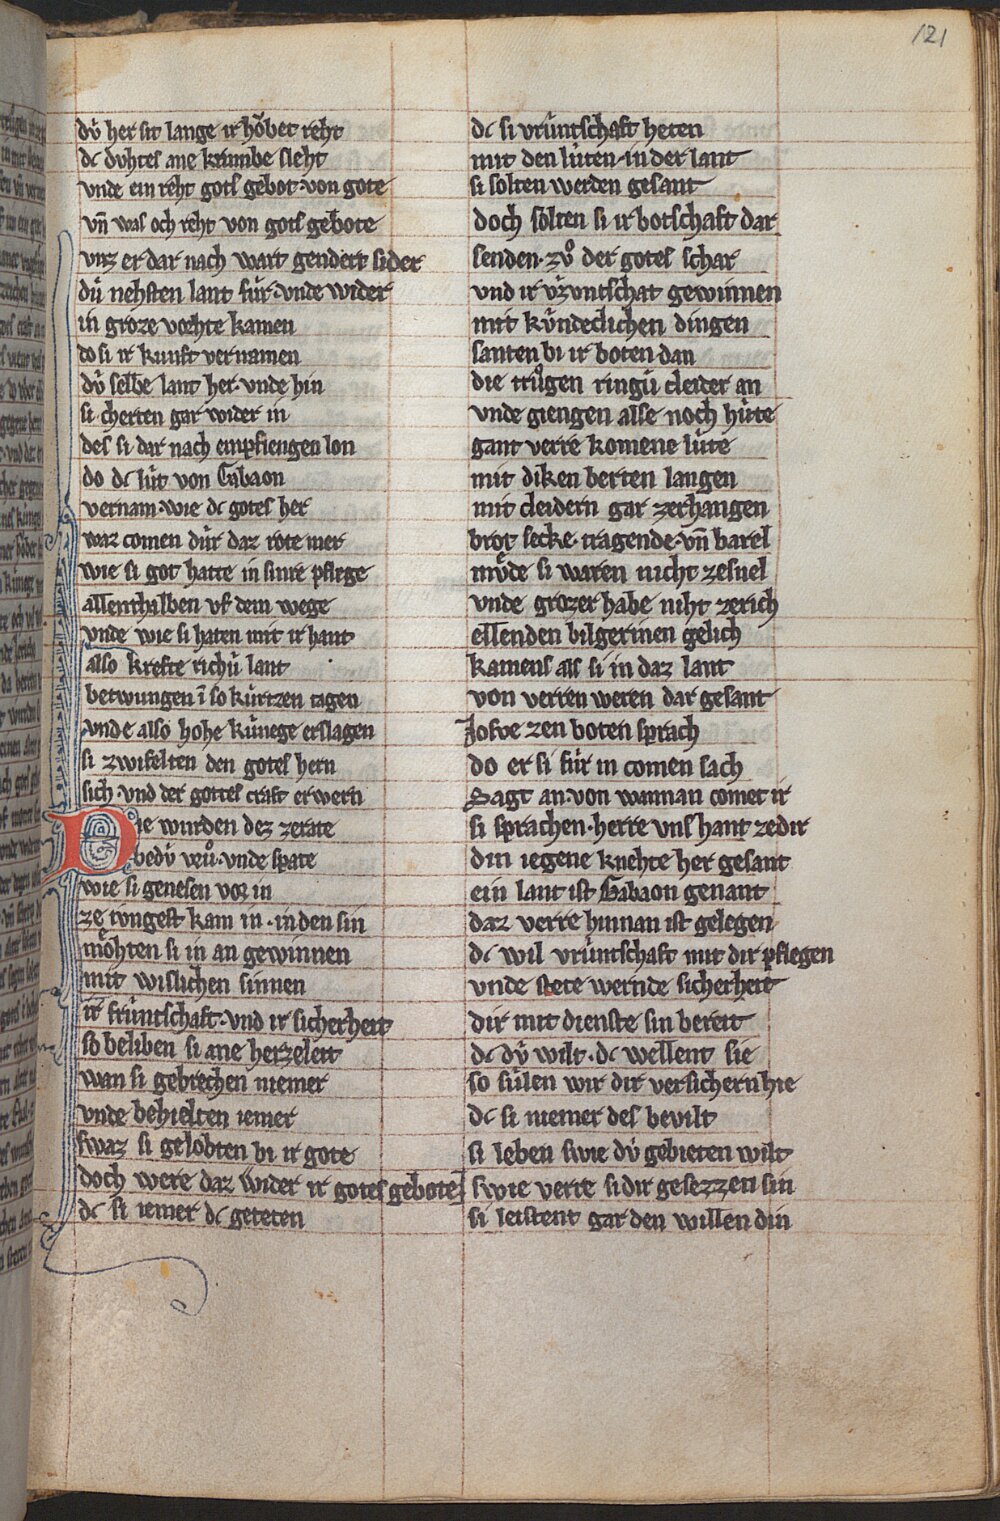 121
dv̓ her sit lange ir hôbet reht
dc duhtes ane krumbe sleht
vnde ein reht gots gebot von gote
vn̄ was och reht von gots gebote
vnz er dar nach wart gendert sider
dú nehsten lant fúr vnde wider
in groze vorhte kamen
do si ir kunft vernamen
dv̓ selbe lant her vnde hin
si cherten gar wider in
des si dar nach empfiengen lon
do dc lút von Gabaon
vernam wie dc gotes her
waz comen dúr daz rote mer
wie si got hatte in sinre pflege
allenthalben vf dem wege
vnde wie si haten mit ir hant
also krefte richú lant
betwungen ī so kúrtzen tagen
vnde also hohe kúnege erslagen
si zwifelten den gotes hern
sich vnd der gottes craft erwern
Die wurden dez zerate
bedv̓ vrů vnde spate
wie si genesen vor in
ze iungest kam in in den sin
môhten si in an gewinnen
mit wislichen sinnen
ir frúntschaft vnd ir sicherheit
so beliben si ane herzeleit
wan si gebrechen niemer
vnde behielten iemer
swaz si gelobten bi ir gote
doch were daz wider ir gotes gebote
dc si iemer dc geteten
dc si vrúntschaft heten
mit den lúten in der lant
si solten werden gesant
doch solten si ir botschaft dar
senden zů der gotes schar
vnd ir vrv̓ntschat gewinnen
mit kv̓ndeclichen dingen
santen bi ir boten dan
die trůgen ringú cleider an
vnde giengen alse noch húte
gant verre komene lúte
mit diken berten langen
mit cleidern gar zerhangen
brot secke tragende vn̄ barel
mv̊de si waren nicht zesnel
vnde grozer habe niht zerich
ellenden bilgerinen gelich
kamens als si in daz lant
von verren weren dar gesant
Josve zen boten sprach
do er si fúr in comen sach
Sagt an von wannan comet ir
si sprachen herre vns hant zedir
din iegene knehte her gesant
ein lant ist Gabaon genant
daz verre hinnan ist gelegen
dc wil vrúntschaft mit dir pflegen
vnde stete wernde sicherheit
dir mit dienste sin bereit
dc dv̓ wilt dc wellent sie
so súlen wir dir versichern hie
dc si niemer des bevilt
si leben swie dv̓ gebieten wilt
swie verre si dir gesezzen sin
si leistent gar den willen din